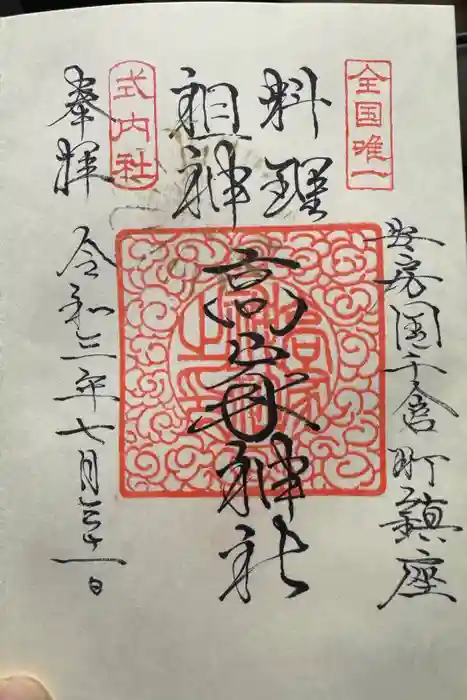 全国唯一
安房国千倉町鎮座
料理
祖神
高家神社
式内社
奉拝
令和三年七月三十一日